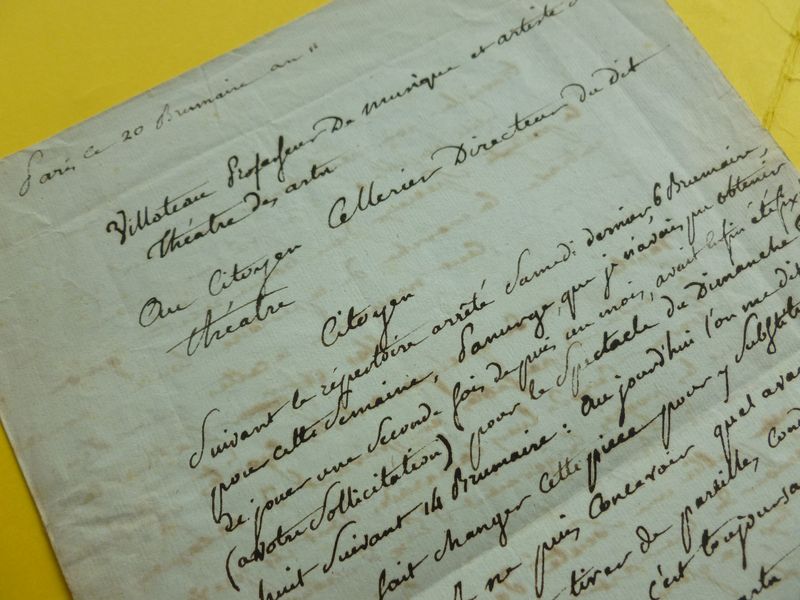 Paris ce 20 Brumaire an 11
Villoteau Professeur De musique et artiste
Théatre des arts
Au Citoyen Cellerier Directeur du dit
théatre
Citoyen
Suivant le répertoire arrêté Samedi dernier, 6 Brumaire,
pour cette Semaine, Panurge, que je n'avais pu obtenir
de jouer une Seconde fois depuis un mois, avait enfin été fixé
(a votre Sollicitation) pour le Spectacle du Dimanche
huit Suivant 14 Brumaire: aujourd'hui l'on me dit
fait changer cette piece pour y Substit
ne puis concevoir quel avan
tirer de pareille, cond
c'est toujours a